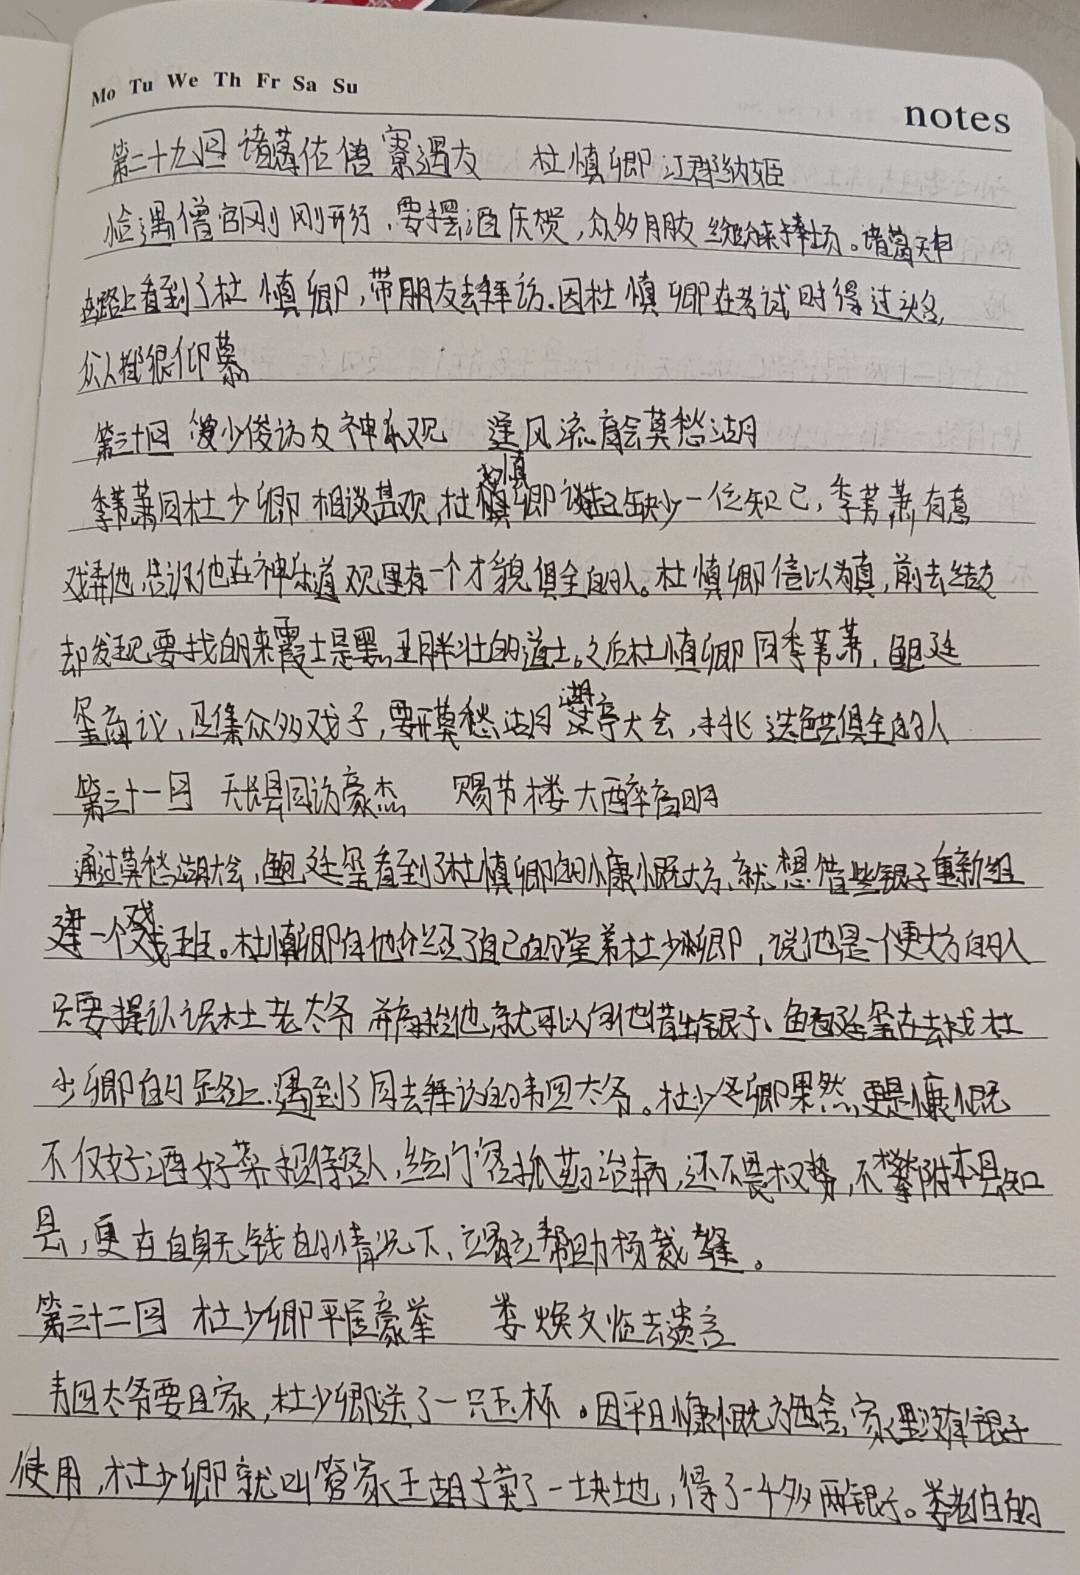 Mo Tu We Th Fr Sa Su
notes
第二十九回 诸葛佑僧寮遇友 杜慎卿江郡纳姬
恰遇僧官刚刚开行,要摆酒庆贺,众多朋友纷纷来捧场。诸葛天申
在路上看到了杜慎卿,带朋友去拜访.因杜慎卿在考试时得过头名,
众人都很仰慕
第三十回 爱少俊访友神乐观 逞风流高会莫愁湖
季苇萧同杜少卿相谈甚欢,杜慎卿谈起缺少一位知己,季苇萧有意
戏弄他,告诉他在神乐道观里有一个才貌俱全的人。杜慎卿信以为真,前去结交
却发现要找的来霞士是黑且胖壮的道士。之后杜慎卿同季苇萧、鲍廷
玺商议,召集众多戏子,要开莫愁湖湖亭大会,挑选色艺俱全的人
第三十一回 天长县同访豪杰 赐书楼大醉高朋
通过莫愁湖大会,鲍廷玺看到了杜慎卿的慷慨大方,就想借些银子重新组
建一个戏班。杜慎卿向他介绍了自己的堂弟杜少卿,说他是一个更大方的人
只要提认识杜老太爷并高抬他,就可以向他借出银子、鲍廷玺在去找杜
少卿的路上.遇到了同去拜访的韦四太爷。杜少卿果然更是慷慨
不仅好酒好菜招待客人,给门客抓药治病,还不畏权势,不攀附本县知
县,更在自身无钱的情况下、立马帮助杨裁缝。
第三十二回 杜少卿平居豪举 娄焕文临去遗言
韦四太爷要回家,杜少卿送了一只玉杯。因平日慷慨大方施舍,家里没有银子
使用,杜少卿就叫管家王胡子卖了一块地,得了一千多两银子。娄老伯的